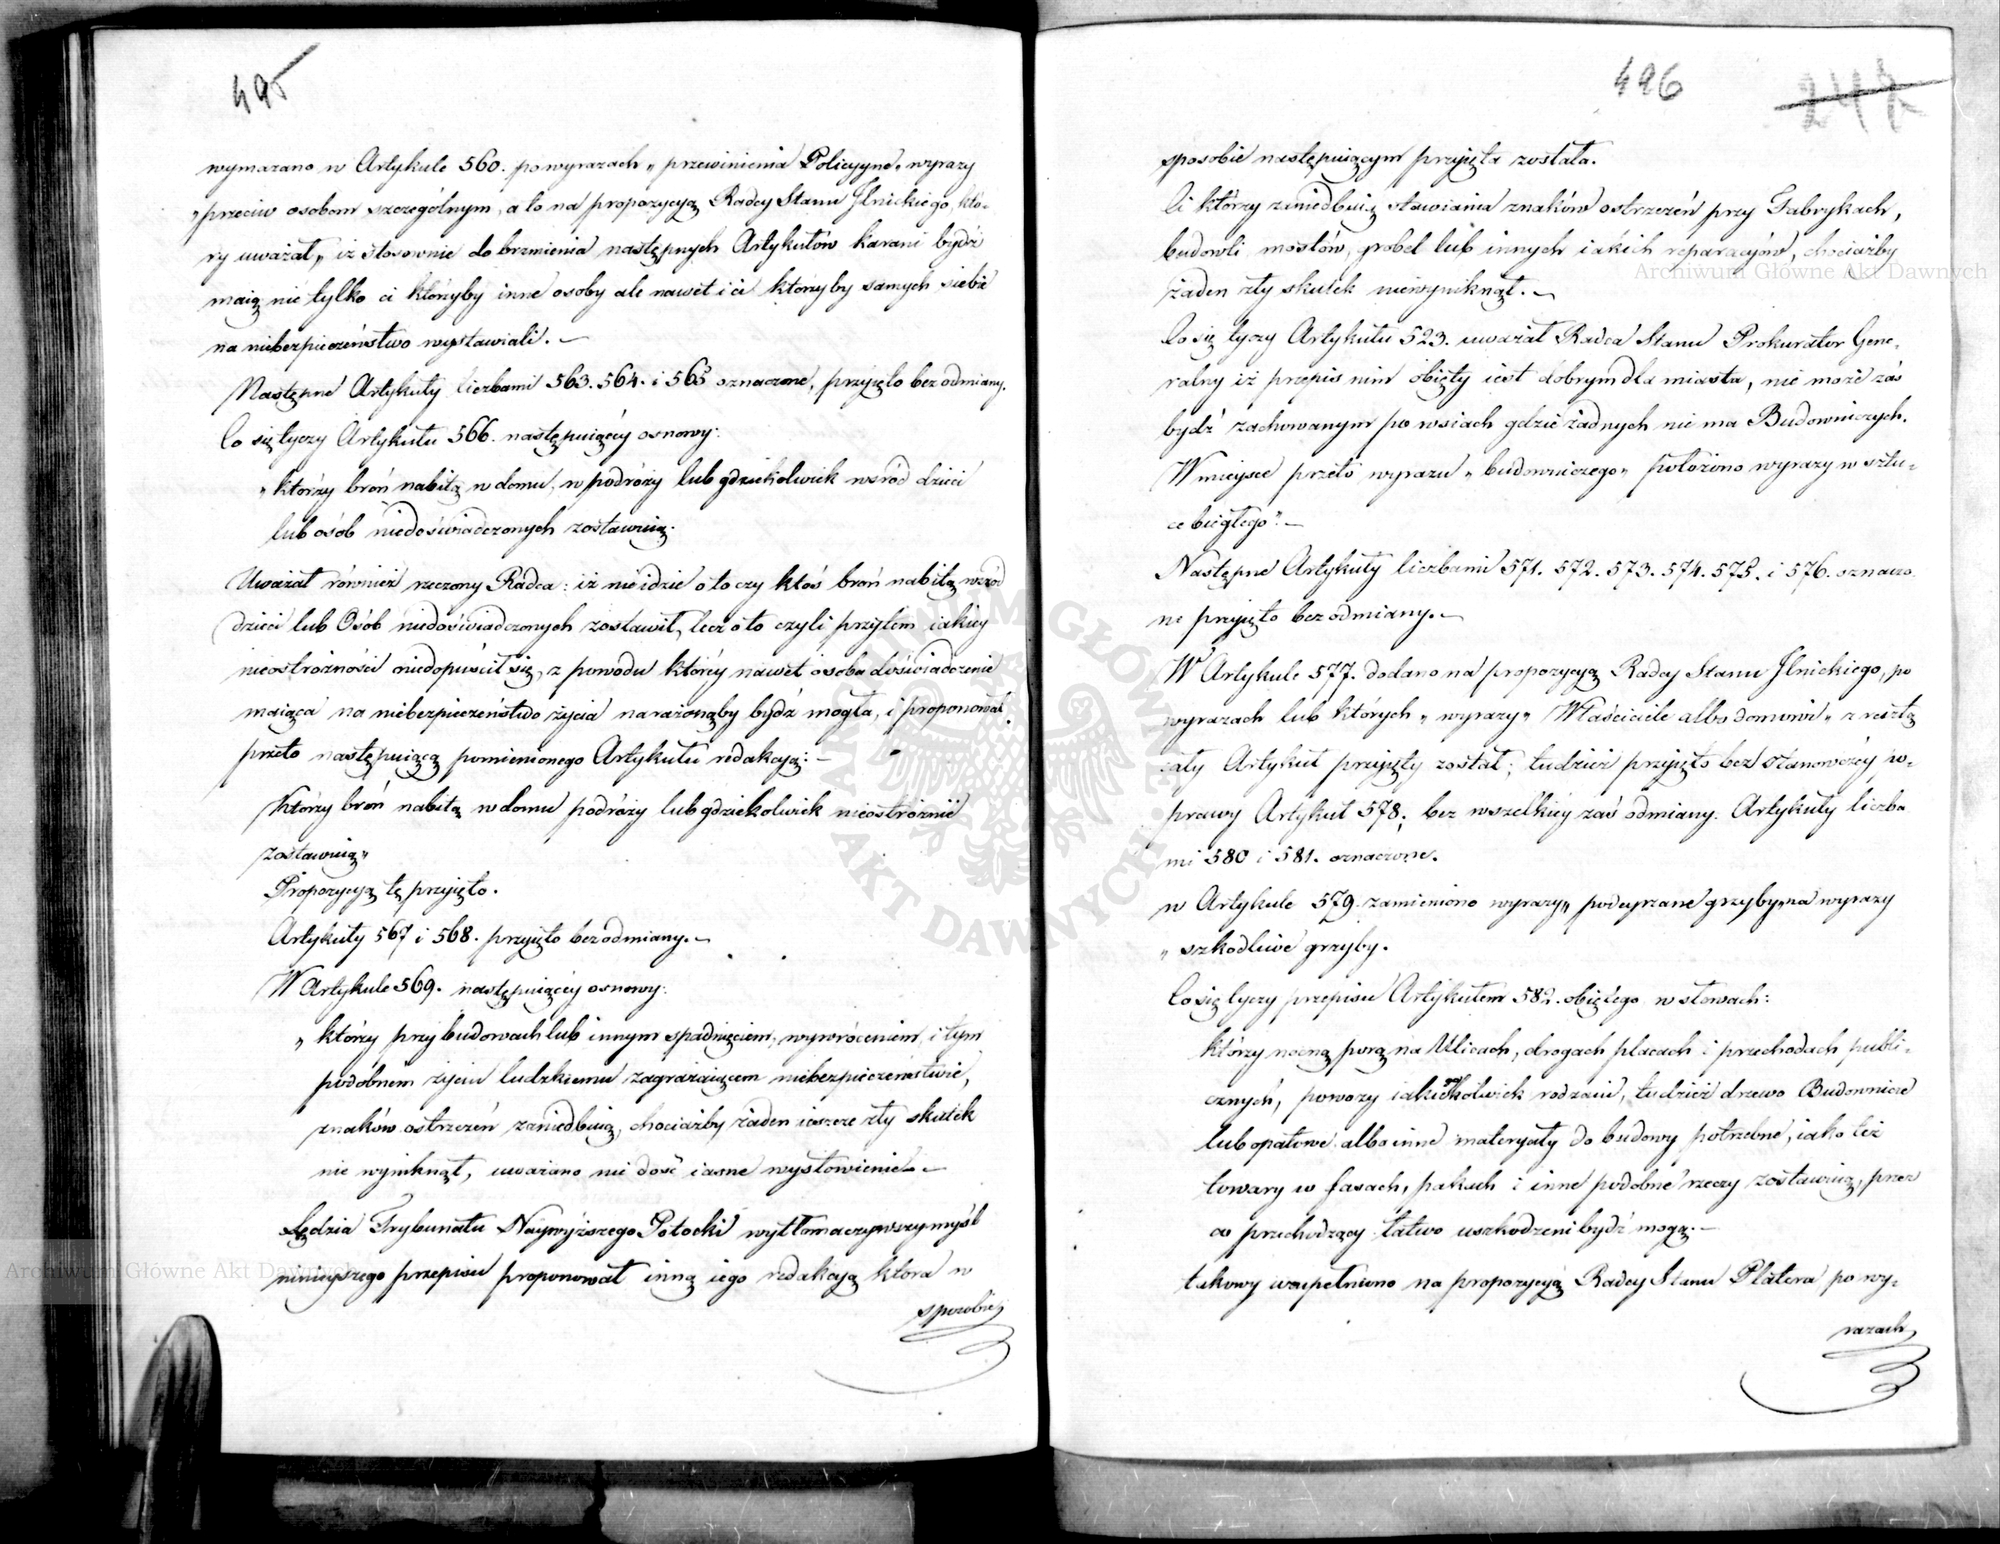 495
wymazano w Artykule 560. po wyrazach „ przewinienia Policyyne„ wyrazy
„ przeciw osobom szczególnym„ a to na propozycyą Radcy Stanu Ilnickiego, któ-
ry uważał„ iż stosownie do brzmienia następnych Artykułów karani bydź
maią nie tylko ci którzyby inne osoby ale nawet i ci którzyby samych siebie
na niebezpieczeństwo wystawiali. —
Następne Artykuły liczbami 563. 564. i 565 oznaczone, przyięto bez odmiany.
Co się tyczy Artykułu 566. następuiącéy osnowy:
„ którzy broń nabitą w domu, w podróży lub gdziekolwiek wsród dzieci
lub osób niedoświadczonych zostawuią.
Uważał również rzeczony Radca: iż nie idzie o to czy ktoś broń nabitą wsród
dzieci lub Osób niedoświadczonych zostawił, lecz o to czyli przytém iakiéy
nieostrożności niedopuścił się, z powodu któréy nawet osoba doświadczenie
maiąca na niebezpieczeństwo życia narażonąby bydź mogła, i proponował
przeto następuiącą pomienionego Artykułu redakcyą: —
Którzy broń nabitą w domu podróży lub gdziekolwiek nieostrożnie
zostawuią„
Propozycyą tę przyięto.
Artykuły 567 i 568. przyięto bez odmiany. —
W Artykule 569. następuiącéy osnowy:
„ którzy przy budowach lub innym spadnięciem, wywróceniem i tym
podobném życiu ludzkiemu zagrażaiącem niebezpieczeństwie,
znaków ostrzeżeń zaniedbuią, chociażby żaden ieszcze zły skutek
nie wyniknął, uważano nie dość iasne wysłowienie. —
Sędzia Trybunału Naywyższego Potocki wytłomaczywszy myśl
ninieyszego przepisu proponował inną iego redakcyą która w
sposobie
496
247
sposobie następuiącym przyięta została.
Ci którzy zaniedbuią stawiania znaków ostrzeżeń przy Fabrykach,
budowli mostów, grobel lub innych iakich reparacyów, chociażby
żaden zły skutek niewyniknął. —
Co się tyczy Artykułu 523. uważał Radca Stanu Prokurator Gene-
ralny iż przepis nim obięty iest dobrym dla miasta, nie może zaś
bydź zachowanym po wsiach gdzie żadnych nie ma Budowniczych.
W mieysce przeto wyrazu „ budowniczego„ położono wyrazy w sztu-
ce biegłego". —
Następne Artykuły liczbami 571. 572. 573. 574. 575. i 576. oznaczo
ne przyięto bez odmiany. —
W Artykule 577. dodano na propozycyą Radcy Stanu Ilnickiego, po
wyrazach lub których „ wyrazy„ Właściciele albo domowi„ z resztą
cały Artykuł przyięty został; tudzież przyięto bez stanowczéy po-
prawy Artykuł 578; bez wszelkiéy zaś odmiany. Artykuły liczba
mi 580 i 581. oznaczone.
w Artykule 579. zamieniono wyrazy„ podeyrzane grzyby„ na wyrazy
„ szkodliwe grzyby.
Co się tyczy przepisu Artykułem 582. obiętego w słowach:
którzy nocną porą na Ulicach, drogach placach i przechodach publi-
cznych, powozy iakiegokolwiek rodzaiu, tudzież drzewo Budownicze
lub opałowe albo inne materyały do budowy potrzebne, iako też
towary w fasach, pakach i inne podobne rzeczy zostawuią, przez
co przechodzący łatwo uszkodzeni bydź mogą. —
takowy uzupełniono na propozycyą Radcy Stanu Platera po wy-
razach
Archiwum Główne Akt Dawnych
Archiwum Główne Akt Dawnych
ARCHIWUM GŁÓWNE AKT DAWNYCH